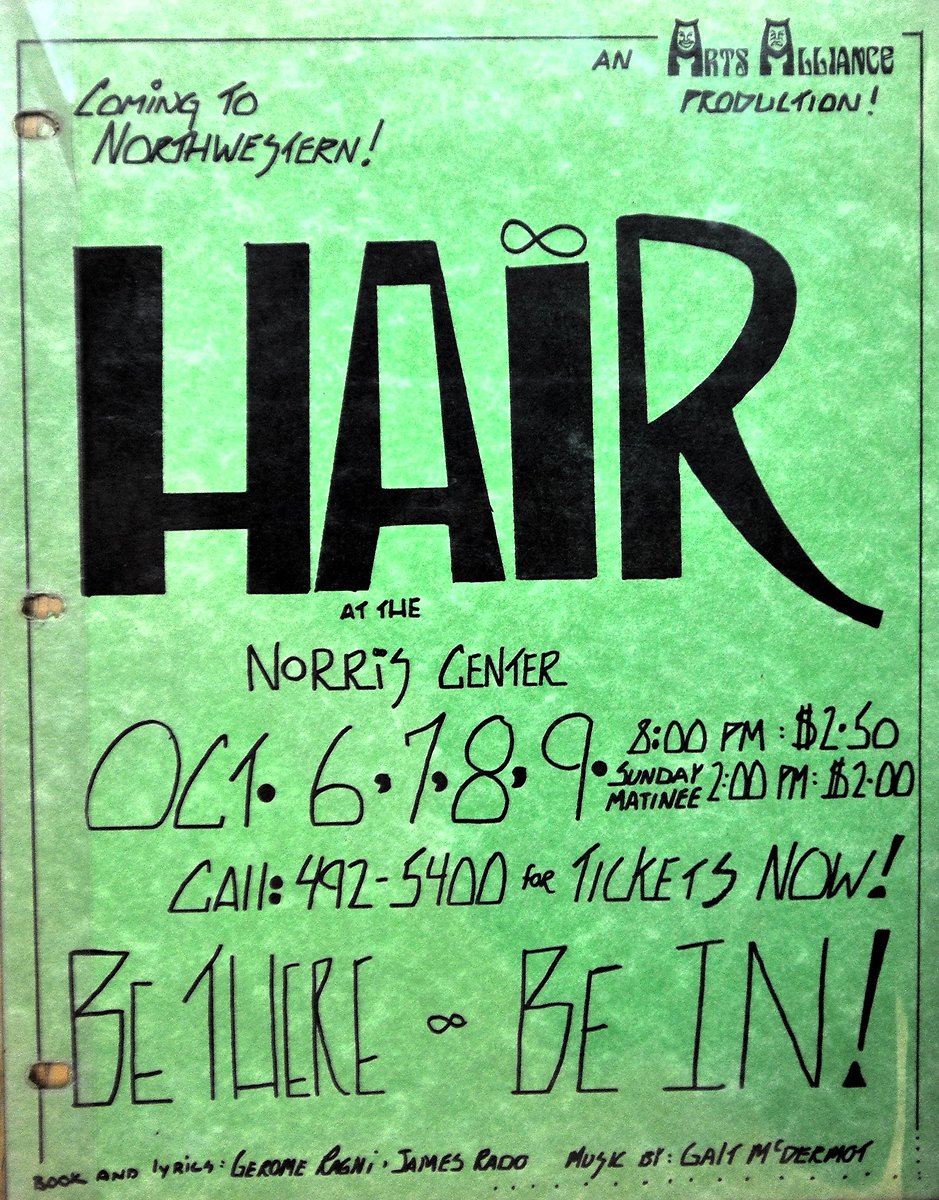 COMING TO
NORTHWESTERN!
AN ARTS ALLIANCE
PRODUCTION!
HAIR
AT THE
NORRIS CENTER
OCT. 6,7,8,9. 8:00 PM : $2.50
SUNDAY MATINÉE 2:00 PM: $2.00
CALL: 492-5400 for TICKETS NOW!
BE THERE ∞ BE IN!
BOOK AND LYRICS: GEROME RAGNI · JAMES RADO MUSIC BY: GALT McDERMOT